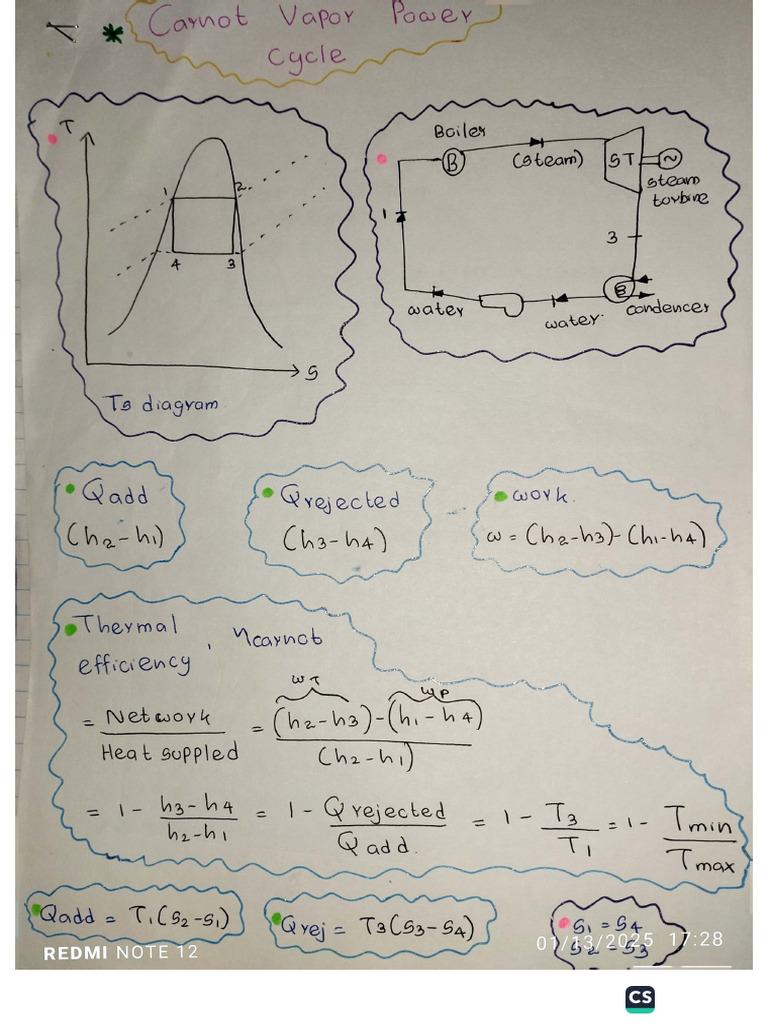 * Carnot Vapor Power
Cycle
T
1
2
4
3
S
Ts diagram
Boiler
B
(steam)
ST
~
steam
torbine
1
3
water
water
condencer
Qadd
(h2-h1)
Qrejected
(h3-h4)
work
w = (h2-h3)-(h1-h4)
Thermal
efficiency, ηcarnot
wT
wp
= Network / Heat suppled = (h2-h3)-(h1-h4) / (h2-h1)
= 1 - h3-h4 / h2-h1 = 1 - Qrejected / Qadd. = 1 - T3 / T1 = 1 - Tmin / Tmax
Qadd = T1(s2-s1)
Qrej = T3(s3-s4)
s1 = s4
s2 = s3
REDMI NOTE 12
01/13/2025 17:28
CS